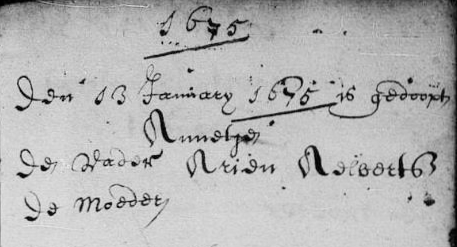 1675
Den 13 January 1675 is gedoopt
Annetje
de Vader Arien Aelberts
de Moeder